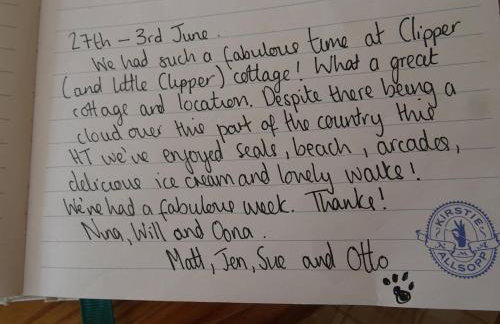 27th - 3rd June.
We had such a fabulous time at Clipper
(and little Clipper) cottage! What a great
cottage and location. Despite there being a
cloud over this part of the country this
HT we've enjoyed seals, beach, arcades,
delicious ice cream and lovely walks!
We've had a fabulous week. Thanks!
Nina, Will and Oona.
Matt, Jen, Sue and Otto
KIRSTIE
ALLSOPP